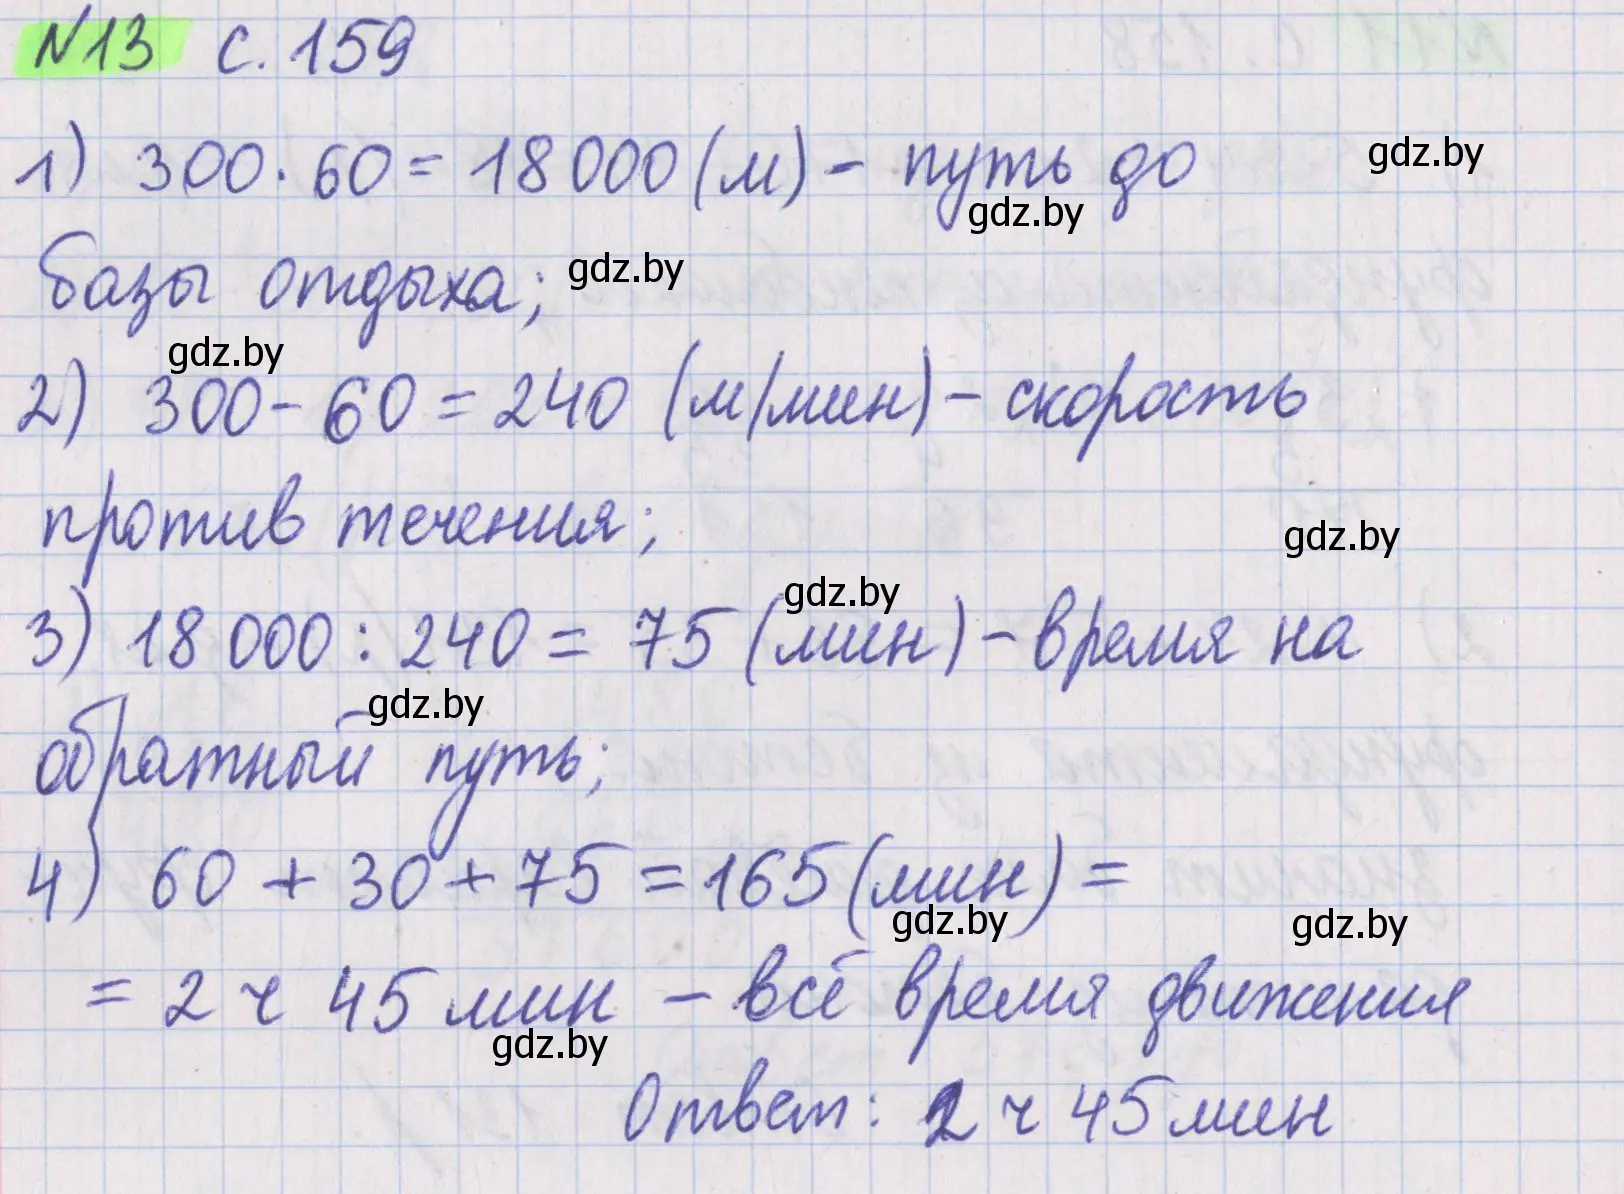 №13 с. 159
1) 300 · 60 = 18 000 (м) - путь до
gdz.by
gdz.by
базы отдыха;
gdz.by
gdz.by
2) 300 - 60 = 240 (м/мин) - скорость
против течения;
gdz.by
gdz.by
3) 18 000 : 240 = 75 (мин) - время на
gdz.by
обратный путь;
4) 60 + 30 + 75 = 165 (мин) =
gdz.by
gdz.by
= 2 ч 45 мин - всё время движения
gdz.by
Ответ: 2 ч 45 мин